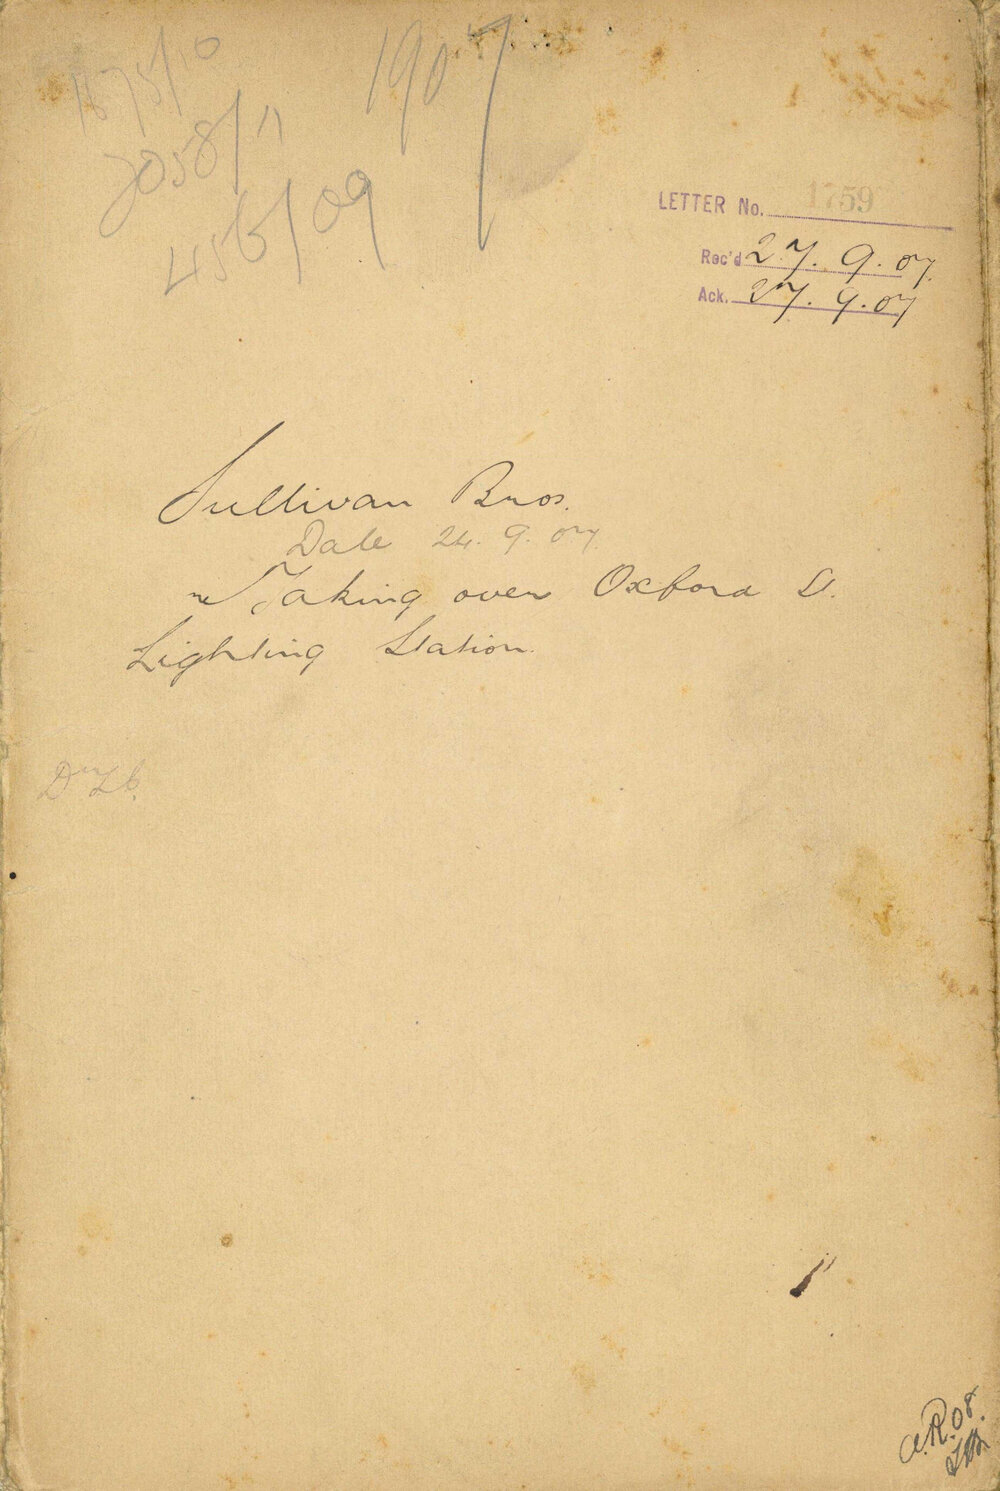 1875/10
2058/11
456/09
1907
LETTER No. 1759
Rec'd 27.9.07.
Ack. 27.9.07
Sullivan Bros.
Date 24.9.07.
re Taking over Oxford St.
Lighting Station.
A.R.08.